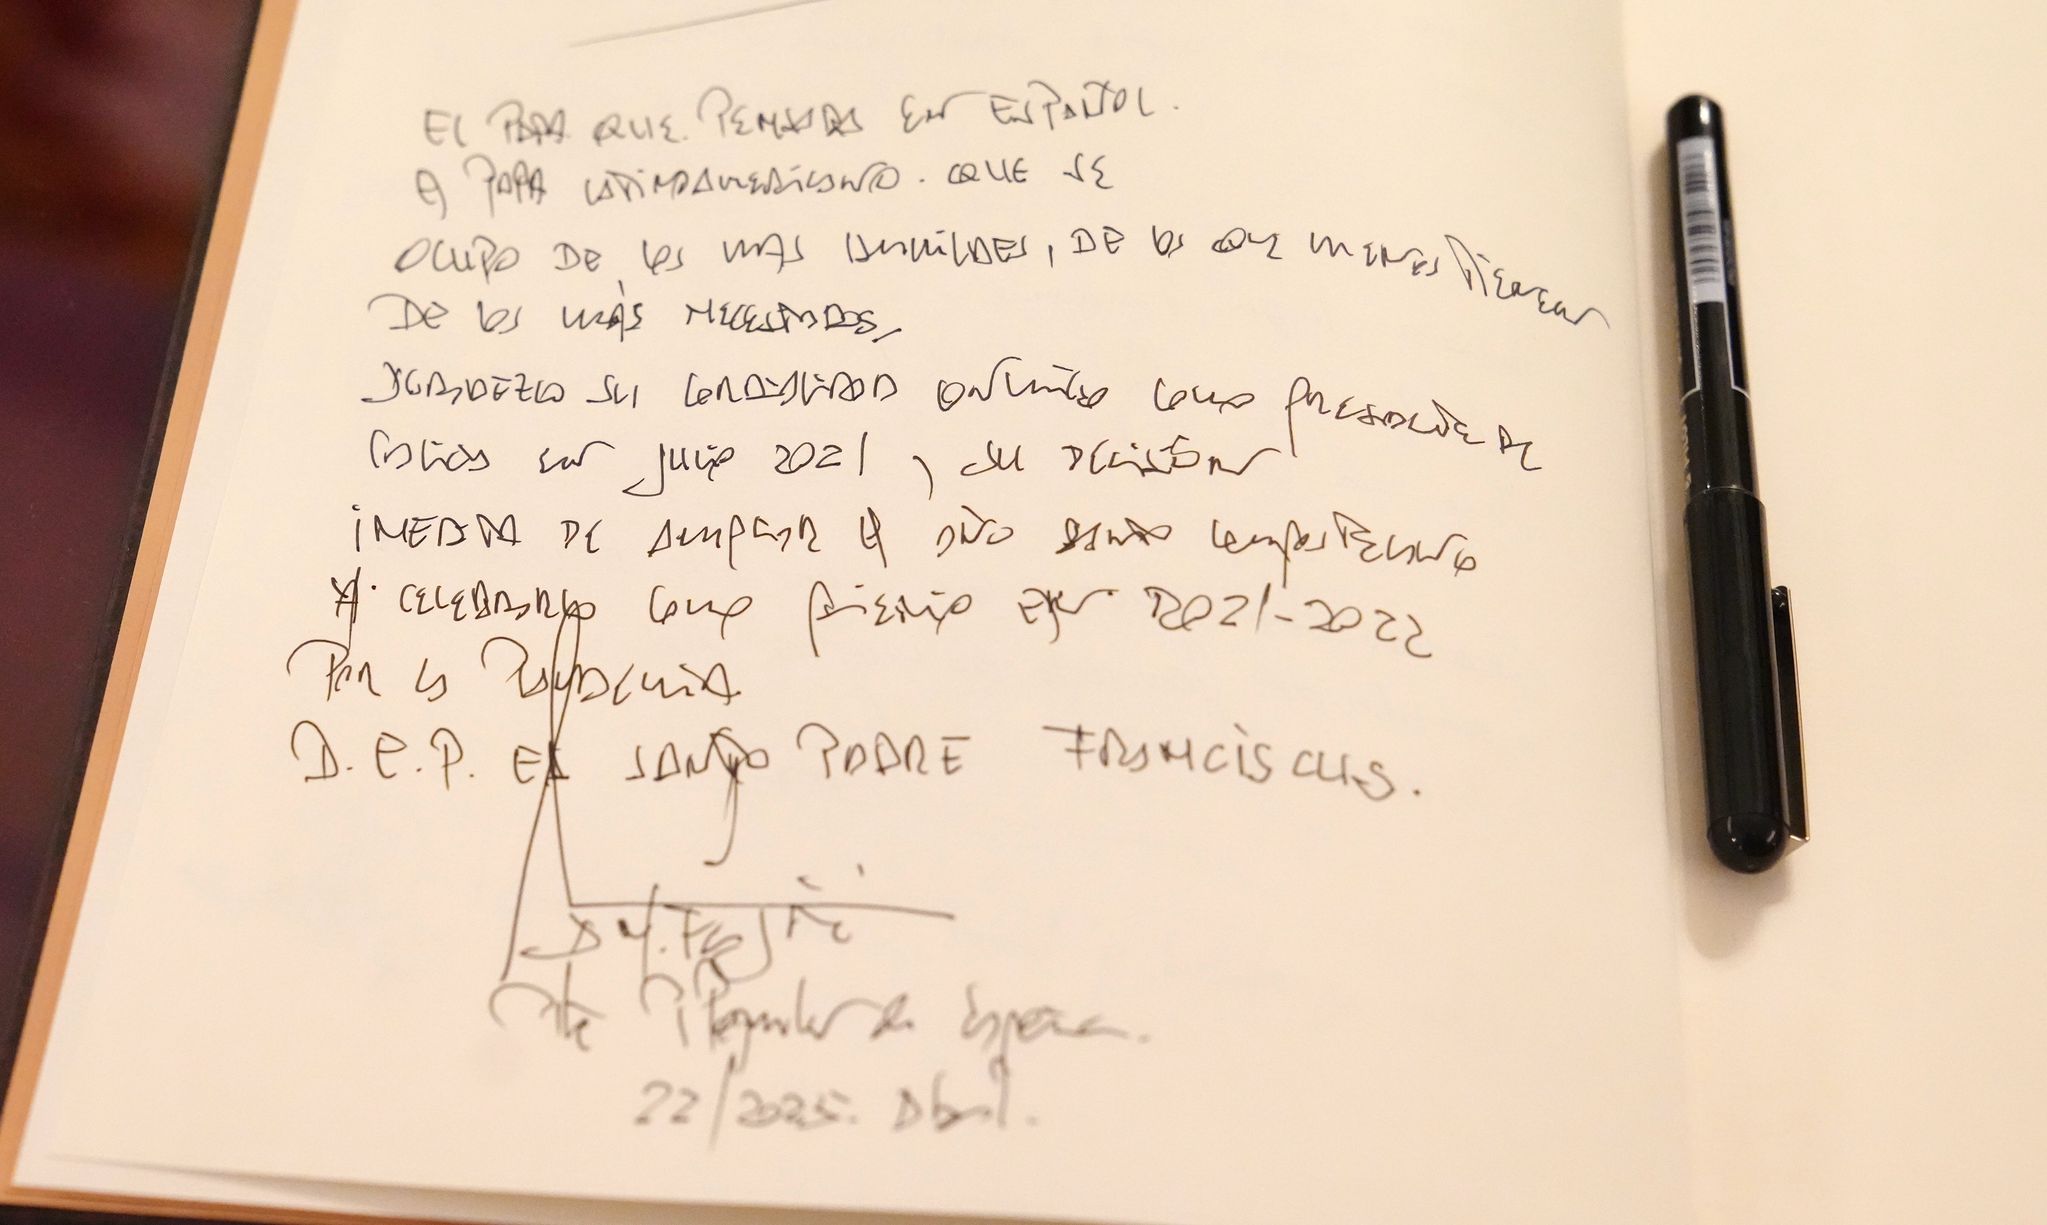 EL PAPA QUE PENSABA EN ESPAÑOL.
El PAPA LATINOAMERICANO. QUE SE
OCUPO DE LOS MAS HUMILDES, DE LOS QUE MENOS TIENEN
DE LOS MÁS NECESITADOS,
AGRADEZCO SU CORDIALIDAD CONMIGO COMO PRESIDENTE DE
GALICIA EN JULIO 2021, SU DECISIÓN
INEDITA DE AMPLIAR El AÑO SANTO COMPOSTELANO
Y CELEBRARLO COMO PREMIO EN 2021-2022
POR LA PANDEMIA
D.E.P. EL SANTO PADRE FRANCISCUS.
A. N. Feijóo
Pte PPopular de España.
22/2025. Abril.